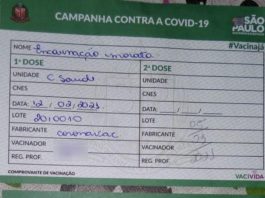 CAMPANHA CONTRA A COVID-19
SÃO PAULO
#Vacinajá
NOME:
1ª DOSE 2ª DOSE
UNIDADE C Saude UNIDADE
CNES CNES
DATA: 12 / 02 / 2021 DATA: / /
LOTE 2010010 LOTE
FABRICANTE coronavac FABRICANTE
VACINADOR VACINADOR
REG. PROF. REG. PROF.
COMPROVANTE DE VACINAÇÃO VACIVIDA